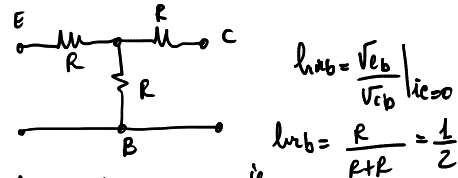 E
R
C
R
R
B
hrb = Veb / Vcb | ie=0
hrb = R / R+R = 1/2